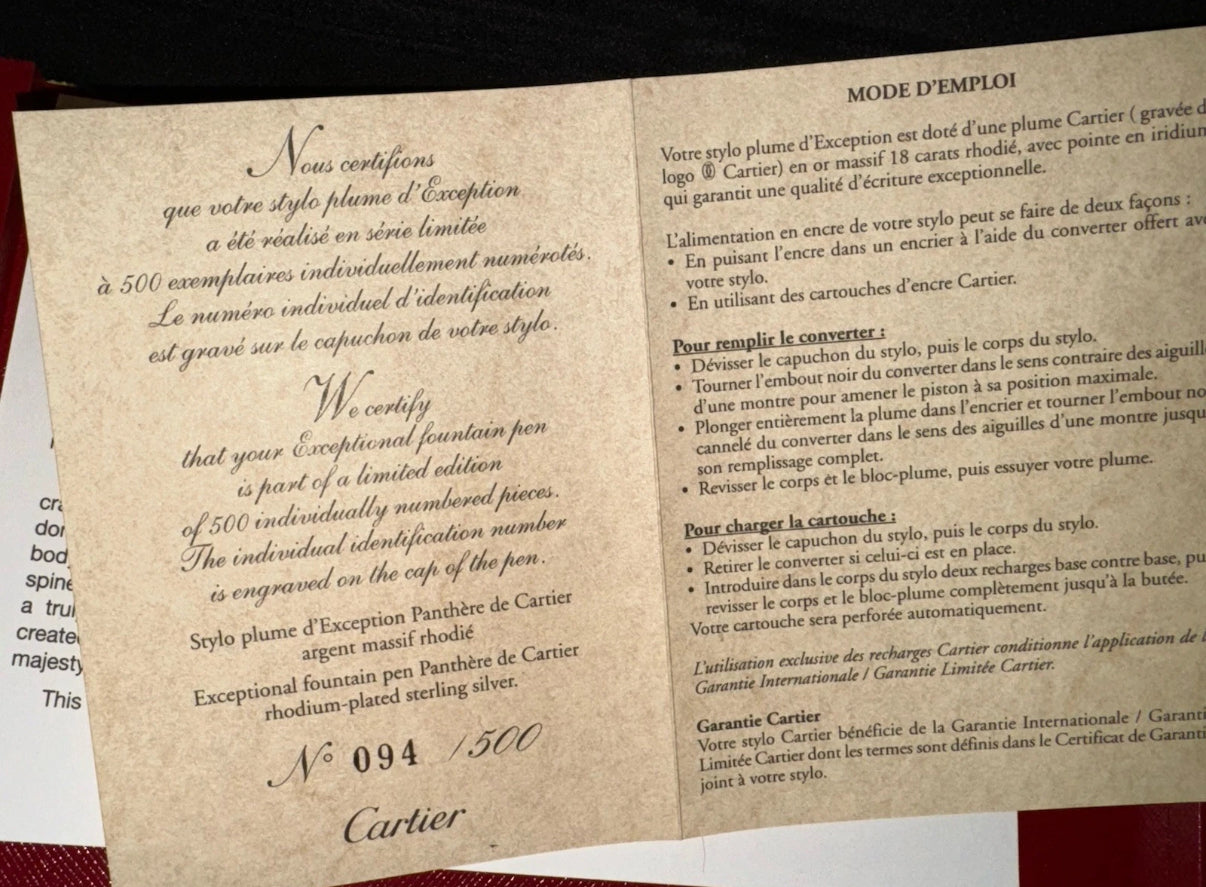 Nous certifions
que votre stylo plume d'Exception
a été réalisé en série limitée
à 500 exemplaires individuellement numérotés.
Le numéro individuel d'identification
est gravé sur le capuchon de votre stylo.
We certify
that your Exceptional fountain pen
is part of a limited edition
of 500 individually numbered pieces.
The individual identification number
is engraved on the cap of the pen.
Stylo plume d'Exception Panthère de Cartier
argent massif rhodié
Exceptional fountain pen Panthère de Cartier
rhodium-plated sterling silver.
N° 094 /500
Cartier
MODE D'EMPLOI
Votre stylo plume d'Exception est doté d'une plume Cartier ( gravée
logo Cartier) en or massif 18 carats rhodié, avec pointe en iridium
qui garantit une qualité d'écriture exceptionnelle.
L'alimentation en encre de votre stylo peut se faire de deux façons :
• En puisant l'encre dans un encrier à l'aide du converter offert
votre stylo.
• En utilisant des cartouches d'encre Cartier.
Pour remplir le converter :
• Dévisser le capuchon du stylo, puis le corps du stylo.
• Tourner l'embout noir du converter dans le sens contraire des
d'une montre pour amener le piston à sa position maximale.
• Plonger entièrement la plume dans l'encrier et tourner l'embout
cannelé du converter dans le sens des aiguilles d'une montre
son remplissage complet.
• Revisser le corps et le bloc-plume, puis essuyer votre plume.
Pour charger la cartouche :
• Dévisser le capuchon du stylo, puis le corps du stylo.
• Retirer le converter si celui-ci est en place.
• Introduire dans le corps du stylo deux recharges base contre base,
revisser le corps et le bloc-plume complètement jusqu'à la butée.
Votre cartouche sera perforée automatiquement.
L'utilisation exclusive des recharges Cartier conditionne l'application de
Garantie Internationale / Garantie Limitée Cartier.
Garantie Cartier
Votre stylo Cartier bénéficie de la Garantie Internationale /
Limitée Cartier dont les termes sont définis dans le Certificat de
joint à votre stylo.
body
spine
a
majesty
This